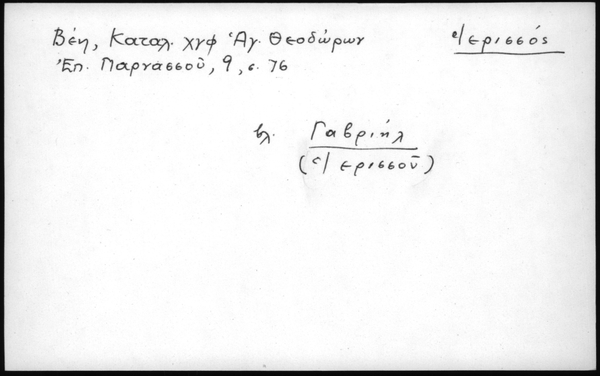 Βέη, Καταλ. χγφ Ἁγ. Θεοδώρων
Ἱερισσός
Ἐπ. Παρνασσοῦ, 9, σ. 76
βλ. Γαβριήλ
(Ἱερισσοῦ)